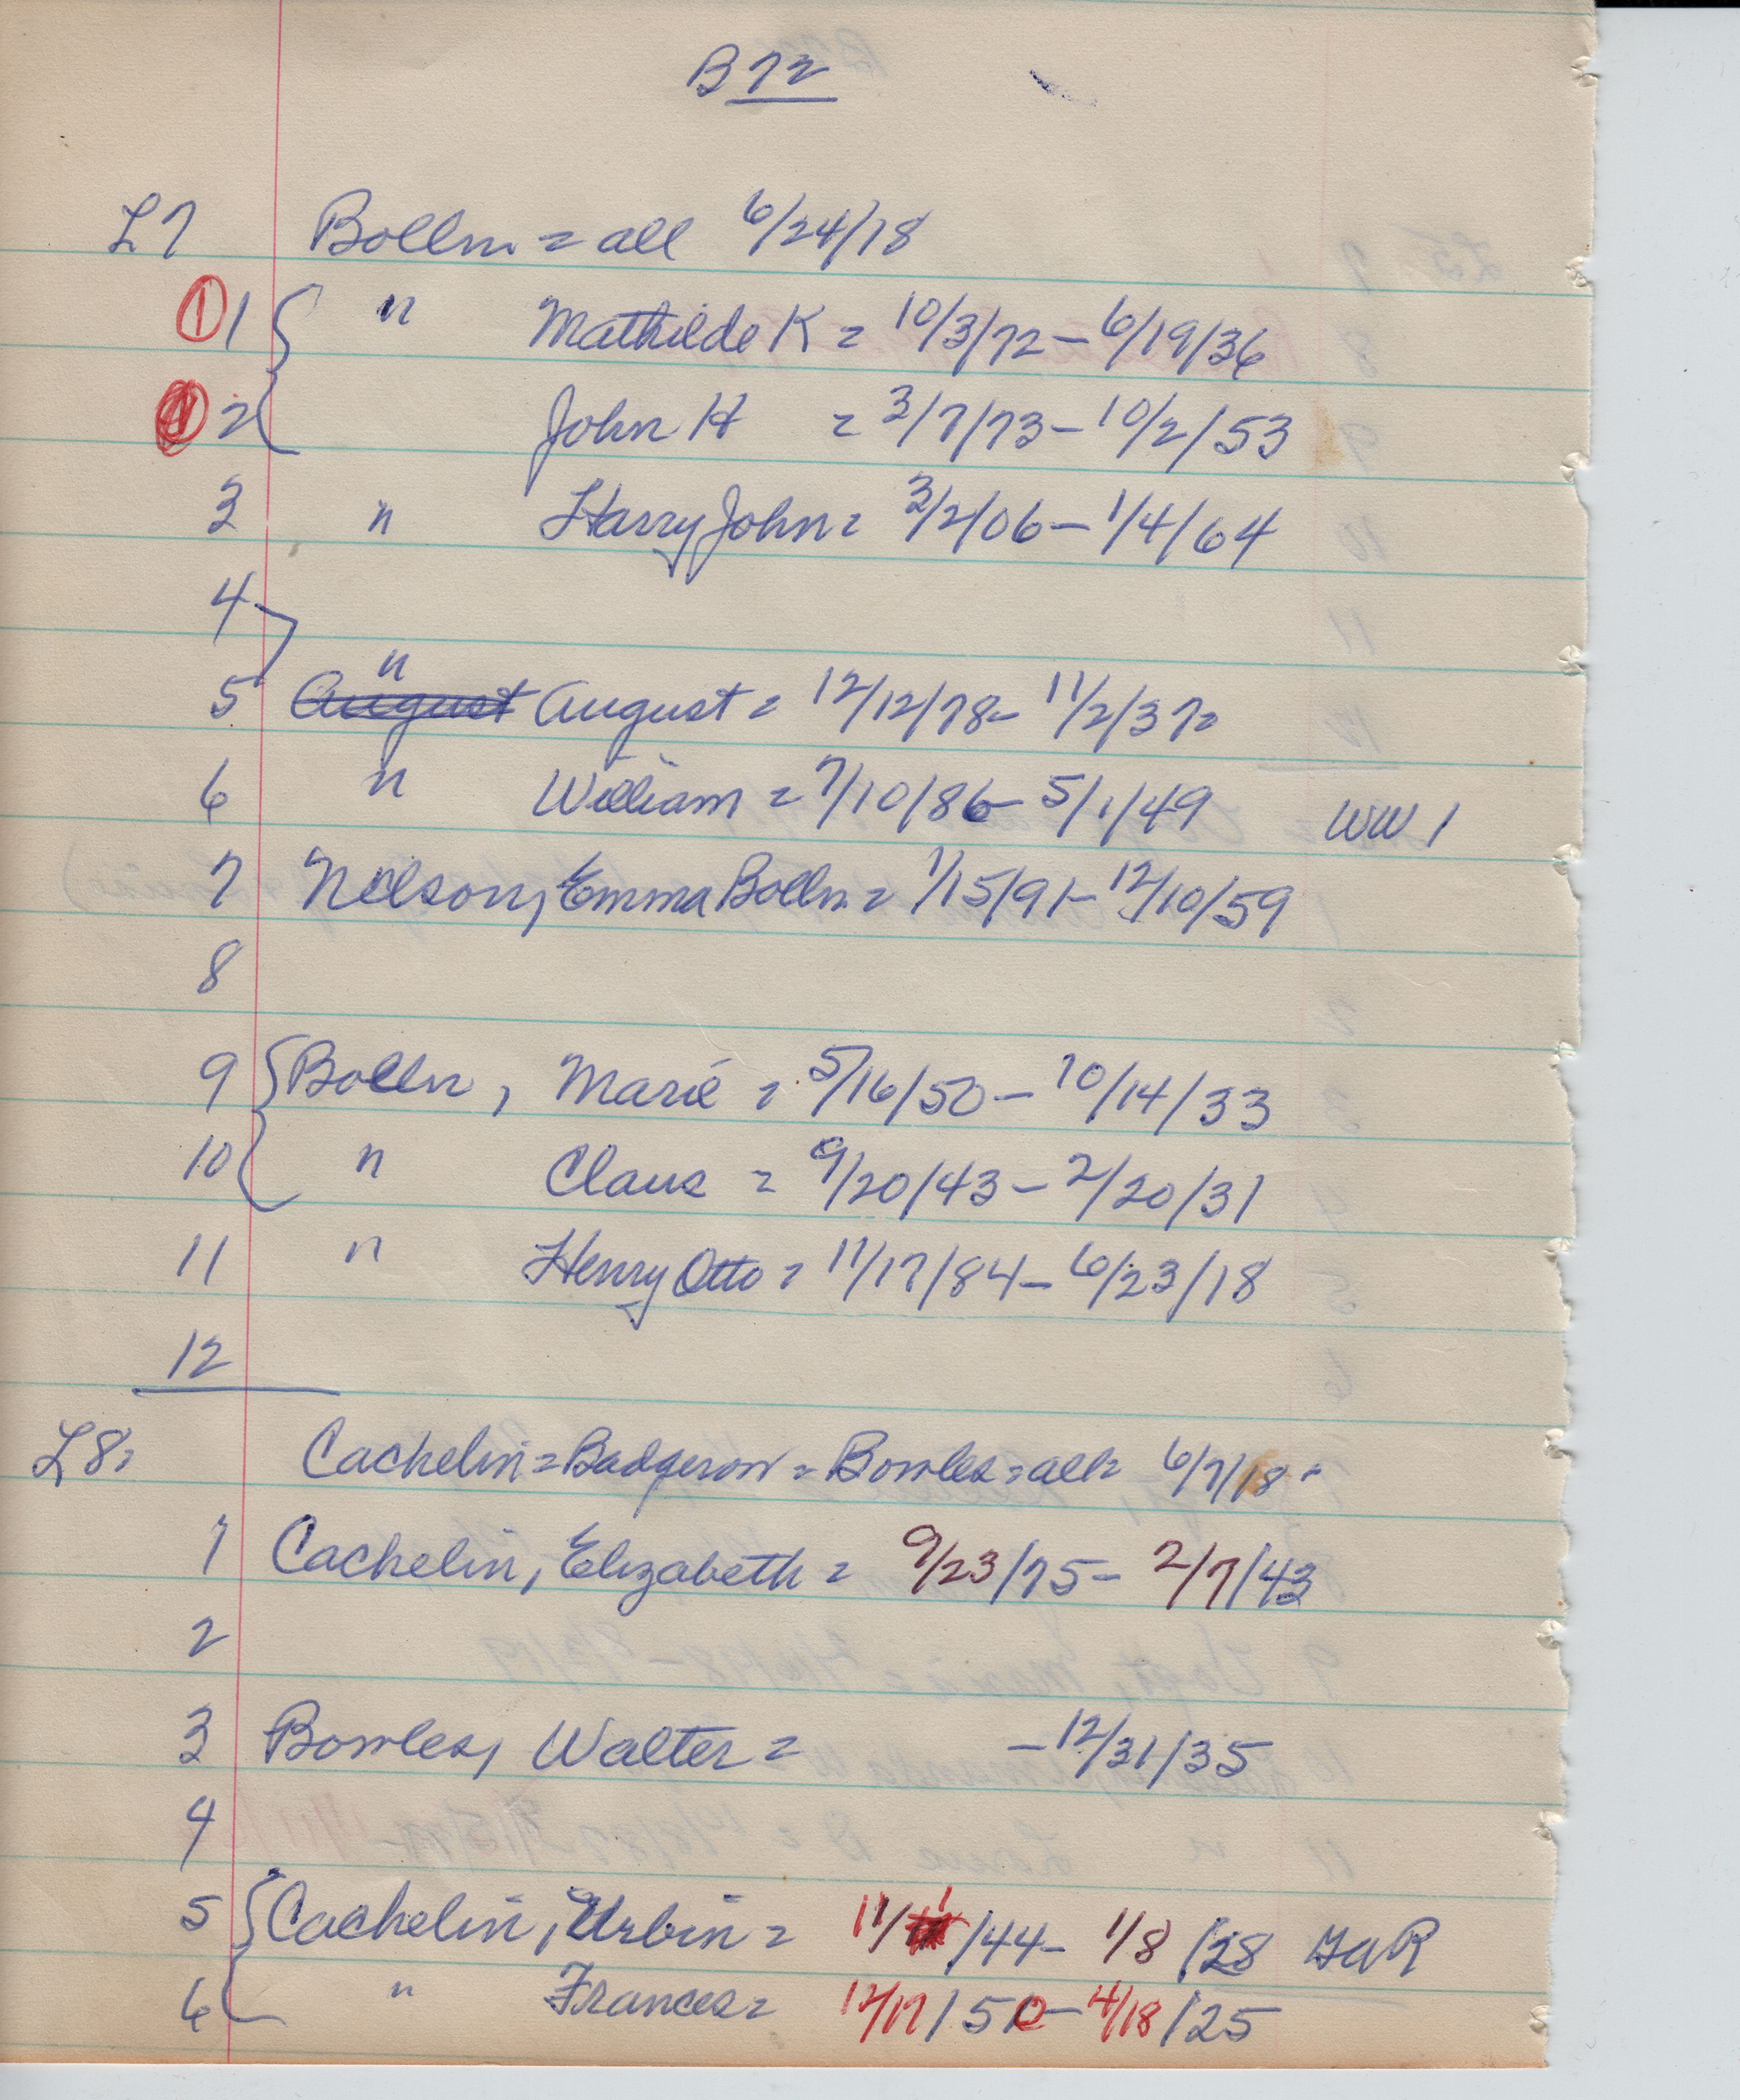 B 72
L7 Bolln = all 6/24/18
① 1 { " Mathilde K = 10/3/72 – 6/19/36
2 John H = 3/7/73 – 10/2/53
3 " Harry John = 3/2/06 – 1/4/64
4
5 August " August = 12/12/78 – 11/2/37 =
6 " William = 7/10/86 – 5/1/49 WW 1
7 Nelson, Emma Bolln = 1/15/91 – 12/10/59
8
9 { Bolln, Marie = 5/16/50 – 10/14/33
10 " Claus = 9/20/43 – 2/20/31
11 " Henry Otto = 11/17/84 – 6/23/18
12
L8 = Cachelin = Badgerow = Bowles = all = 6/7/18 -
1 Cachelin, Elizabeth = 9/23/75 – 2/7/43
2
3 Bowles, Walter = – 12/31/35
4
5 { Cachelin, Urbin = 11/1/44 – 1/8/28 GAR
6 " Frances = 12/17/50 – 4/18/25